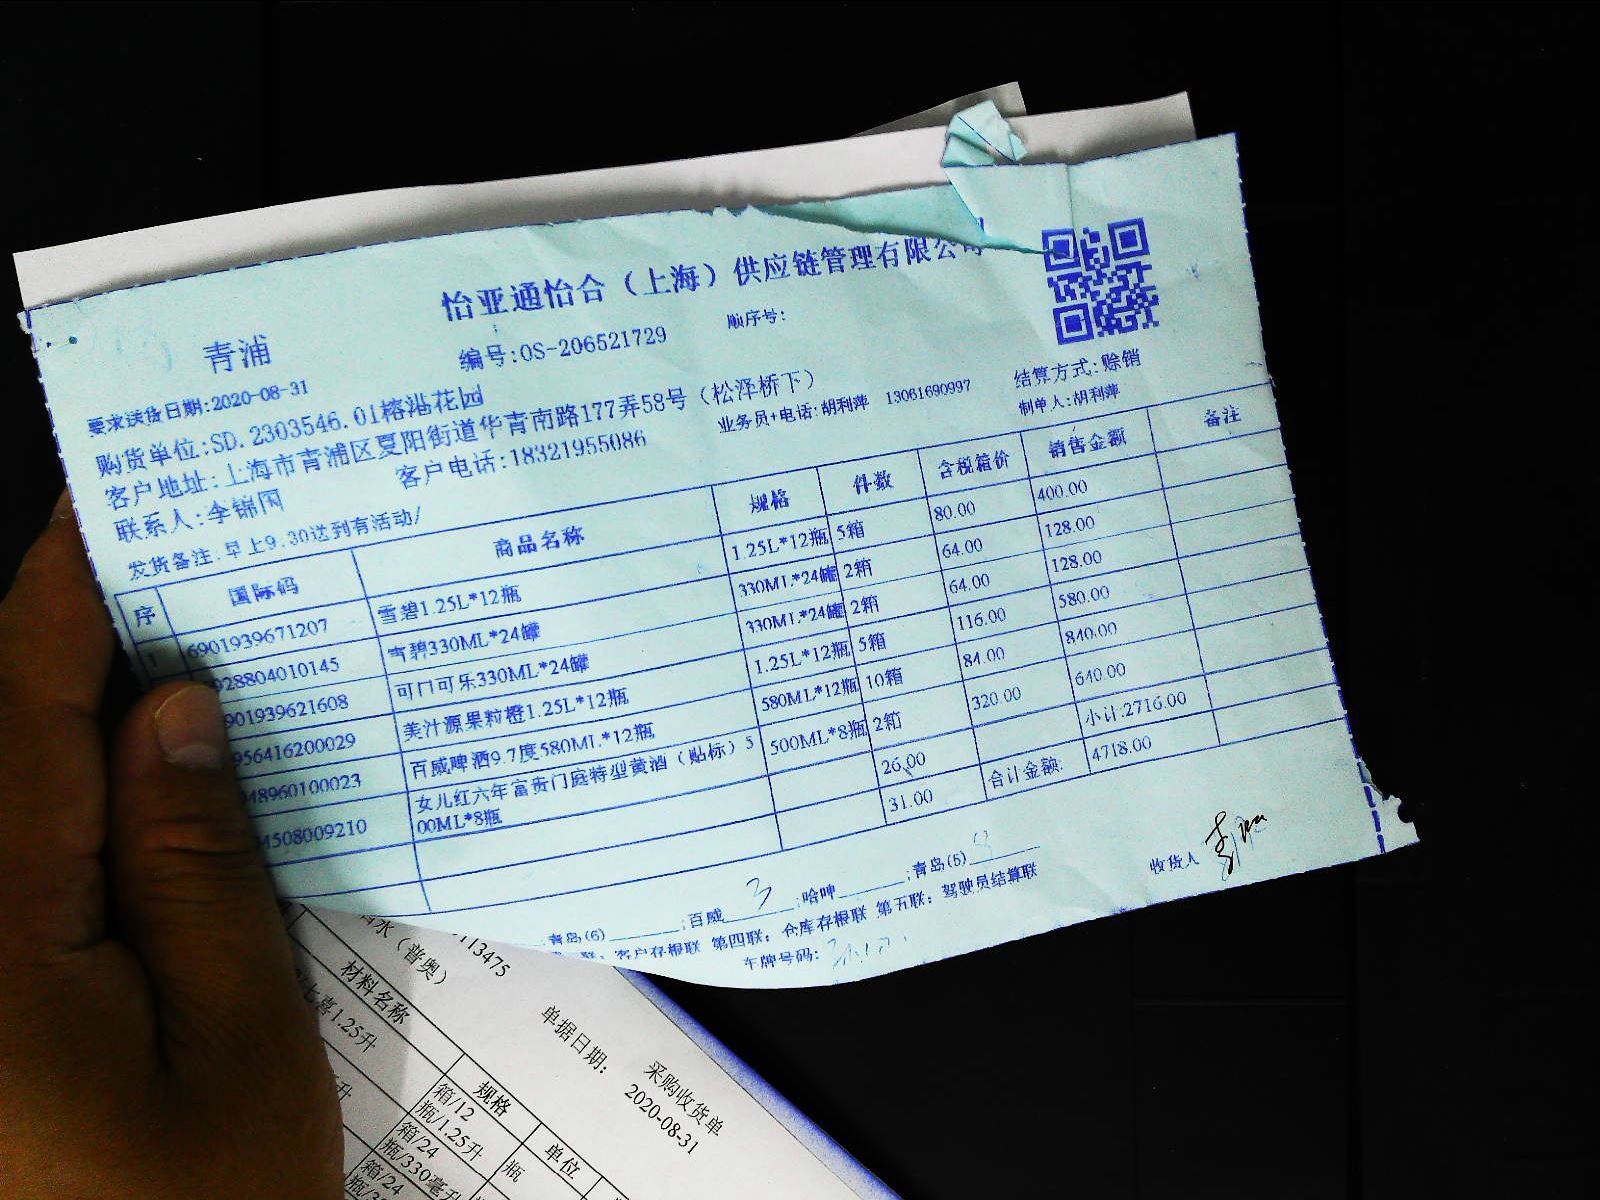 怡亚通怡合（上海）供应链管理有限公司
青浦 编号:OS-206521729 顺序号:
要求送货日期:2020-08-31
购货单位:SD.2303546.01榕湉花园 结算方式:赊销
客户地址:上海市青浦区夏阳街道华青南路177弄58号（松泽桥下）
联系人:李锦国 客户电话:18321955086 业务员+电话:胡利萍 13061690997 制单人:胡利萍
发货备注:早上9.30送到有活动/
序 国际码 商品名称 规格 件数 含税箱价 销售金额 备注
1 6901939671207 雪碧1.25L*12瓶 1.25L*12瓶 5箱 80.00 400.00
928804010145 雪碧330ML*24罐 330ML*24罐 2箱 64.00 128.00
901939621608 可口可乐330ML*24罐 330ML*24罐 2箱 64.00 128.00
956416200029 美汁源果粒橙1.25L*12瓶 1.25L*12瓶 5箱 116.00 580.00
48960100023 百威啤酒9.7度580ML*12瓶 580ML*12瓶 10箱 84.00 840.00
4508009210 女儿红六年富贵门庭特型黄酒（贴标）5 500ML*8瓶 2箱 320.00 640.00
00ML*8瓶
26.00 小计:2716.00
31.00 合计金额: 4718.00
青岛(6) ;百威 3 ;哈啤 ;青岛(5) 收货人
联: 客户存根联 第四联: 仓库存根联 第五联: 驾驶员结算联
车牌号码:
水（普奥）
113475
单据日期: 2020-08-31
采购收货单
材料名称 规格 单位
七喜1.25升 箱/12
瓶/1.25升 瓶
升 箱/24
瓶/330毫升
箱/24